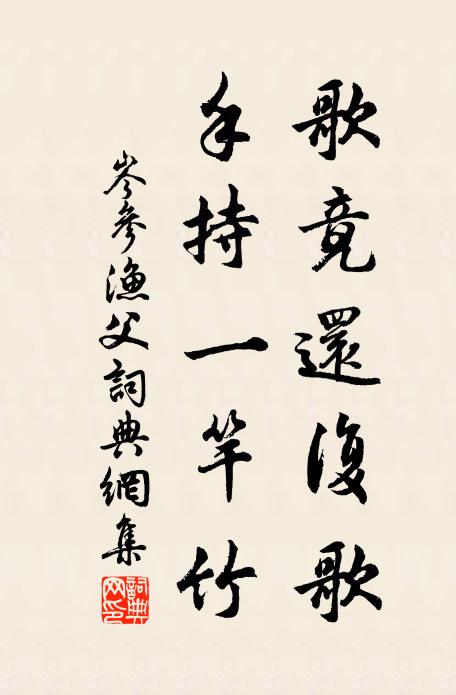 歌竟還復歌
手持一竿竹
岑參漁父詞典網集
詞典
网印